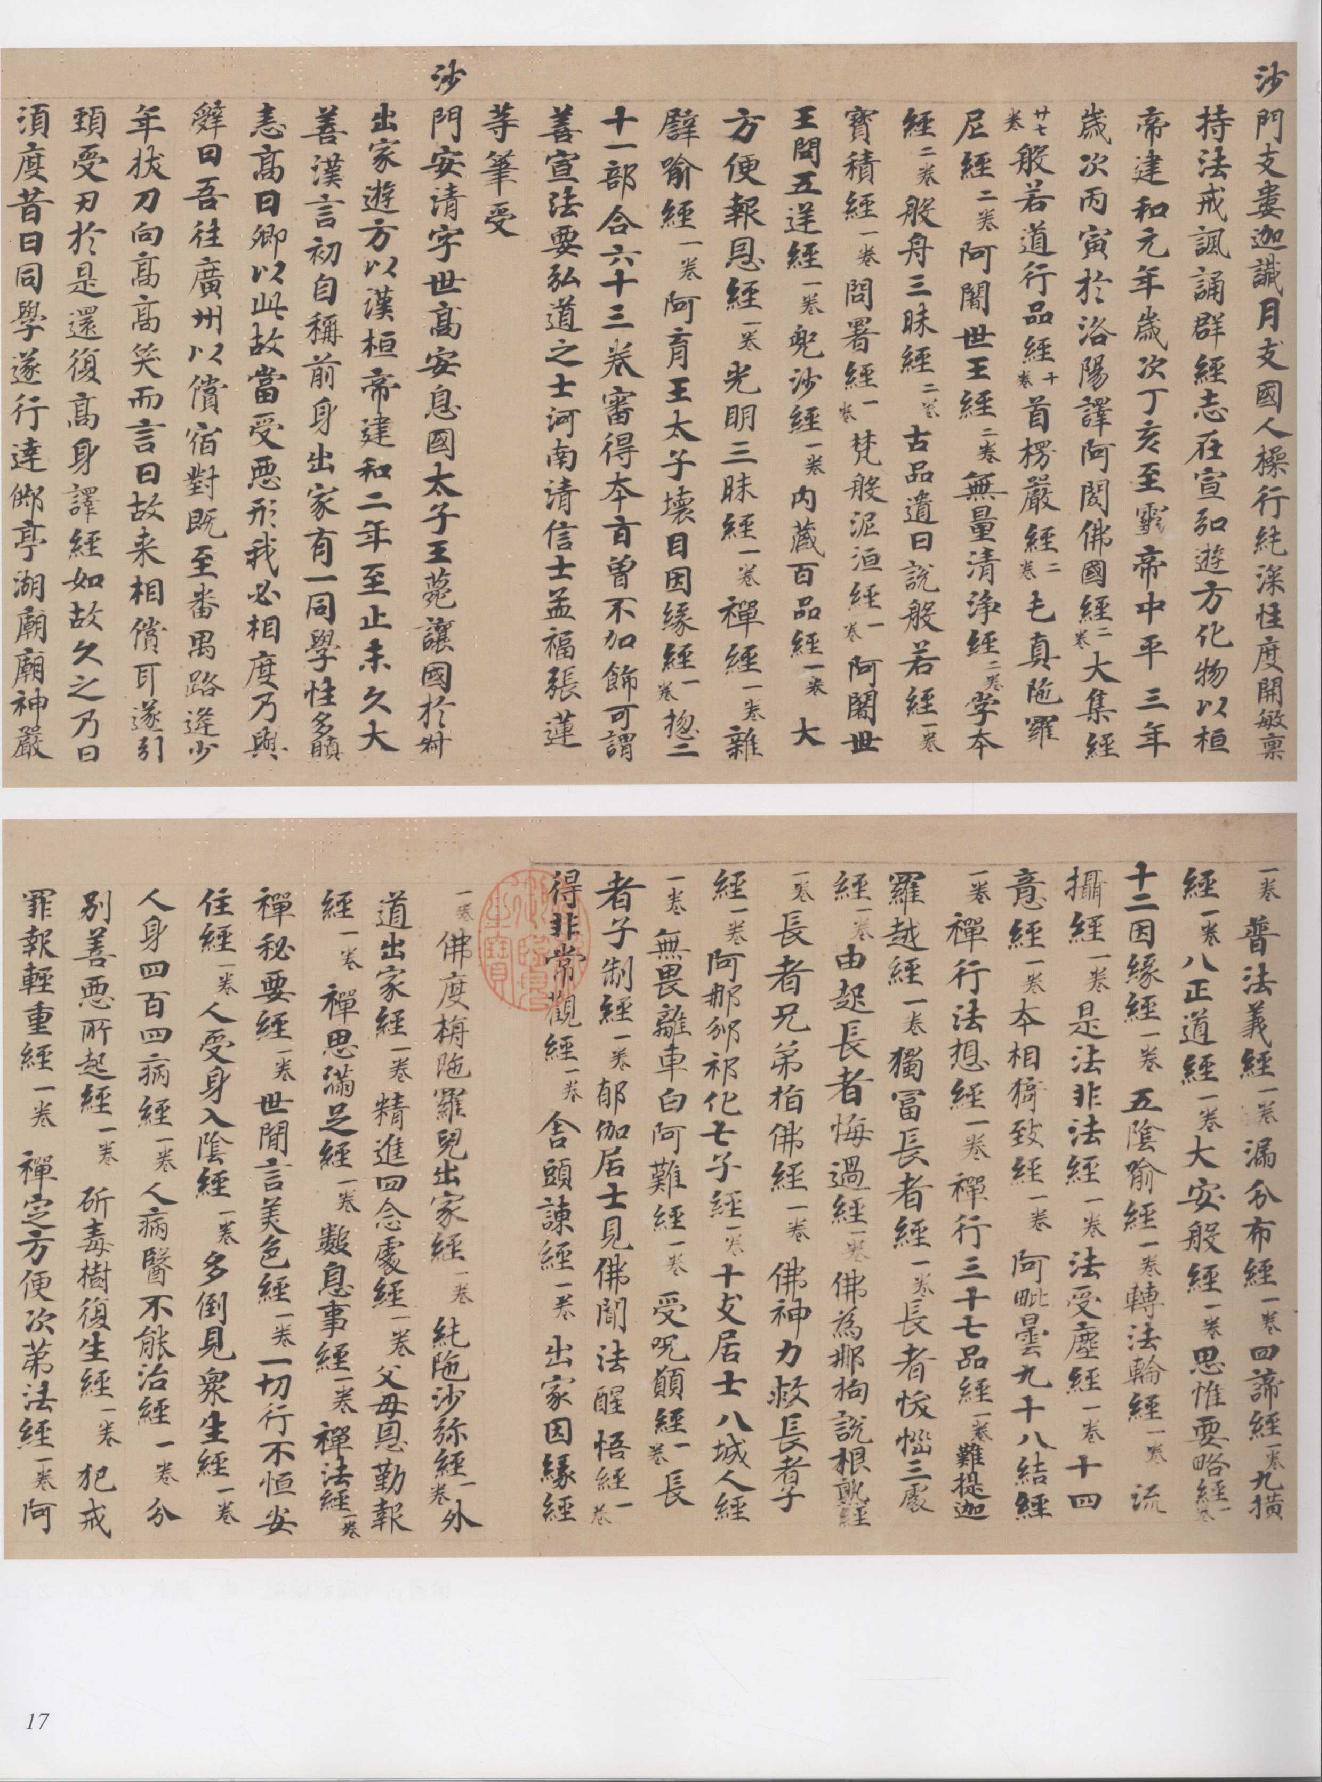 沙門支婁迦讖月支國人操行純深性度開敏稟
持法戒諷誦群經志在宣弘遊方化物以桓
帝建和元年歲次丁亥至靈帝中平三年
歲次丙寅於洛陽譯阿閦佛國經二卷大集經
廿七卷般若道行品經十卷首楞嚴經二卷乇真陁羅
尼經二卷阿闍世王經二卷無量清淨經二卷孛本
經二卷般舟三昧經二卷古品遺日說般若經一卷
寶積經一卷問署經一卷梵般泥洹經一卷阿闍世
王問五逆經一卷兜沙經一卷內藏百品經一卷大
方便報恩經一卷光明三昧經一卷禪經一卷雜
譬喻經一卷阿育王太子壞目因緣經一卷揔二
十一部合六十三卷審得本旨曾不加飾可謂
善宣法要弘道之士河南清信士孟福張蓮
等筆受
沙門安清字世高安息國太子王薨讓國於叔
出家遊方以漢桓帝建和二年至止未久大
善漢言初自稱前身出家有一同學性多瞋
恚高曰卿以此故當受惡形我必相度乃與
辭曰吾往廣州以償宿對既至番禺路逢少
年拔刀向高高笑而言曰故来相償耳遂引
頸受刃於是還復高身譯經如故久之乃曰
須度昔日同學遂行達䢼亭湖廟廟神嚴
一卷普法義經一卷漏分布經一卷四諦經一卷九橫
經一卷八正道經一卷大安般經一卷思惟要略經一卷
十二因緣經一卷五陰喻經一卷轉法輪經一卷流
攝經一卷是法非法經一卷法受塵經一卷十四
意經一卷本相猗致經一卷阿毗曇九十八結經
一卷禪行法想經一卷禪行三十七品經一卷難提迦
羅越經一卷獨冨長者經一卷長者懊惱三處
經一卷由起長者悔過經一卷佛為那拘說根熟經
一卷長者兄弟栺佛經一卷佛神力救長者子
經一卷阿那邠祁化七子經一卷十支居士八城人經
一卷無畏離車白阿難經一卷受呪願經一卷長
者子制經一卷郁伽居士見佛聞法醒悟經一卷
得非常觀經一卷舍頭諫經一卷出家因緣經
一卷佛度栴陁羅兒出家經一卷純陁沙弥經一卷外
道出家經一卷精進四念處經一卷父母恩勤報
經一卷禪思滿足經一卷數息事經一卷禪法經一卷
禪秘要經一卷世間言美色經一卷一切行不恒安
住經一卷人受身入陰經一卷多倒見衆生經一卷
人身四百四病經一卷人病醫不能治經一卷分
別善惡所起經一卷斫毒樹復生經一卷犯戒
罪報輕重經一卷禪定方便次第法經一卷阿
17